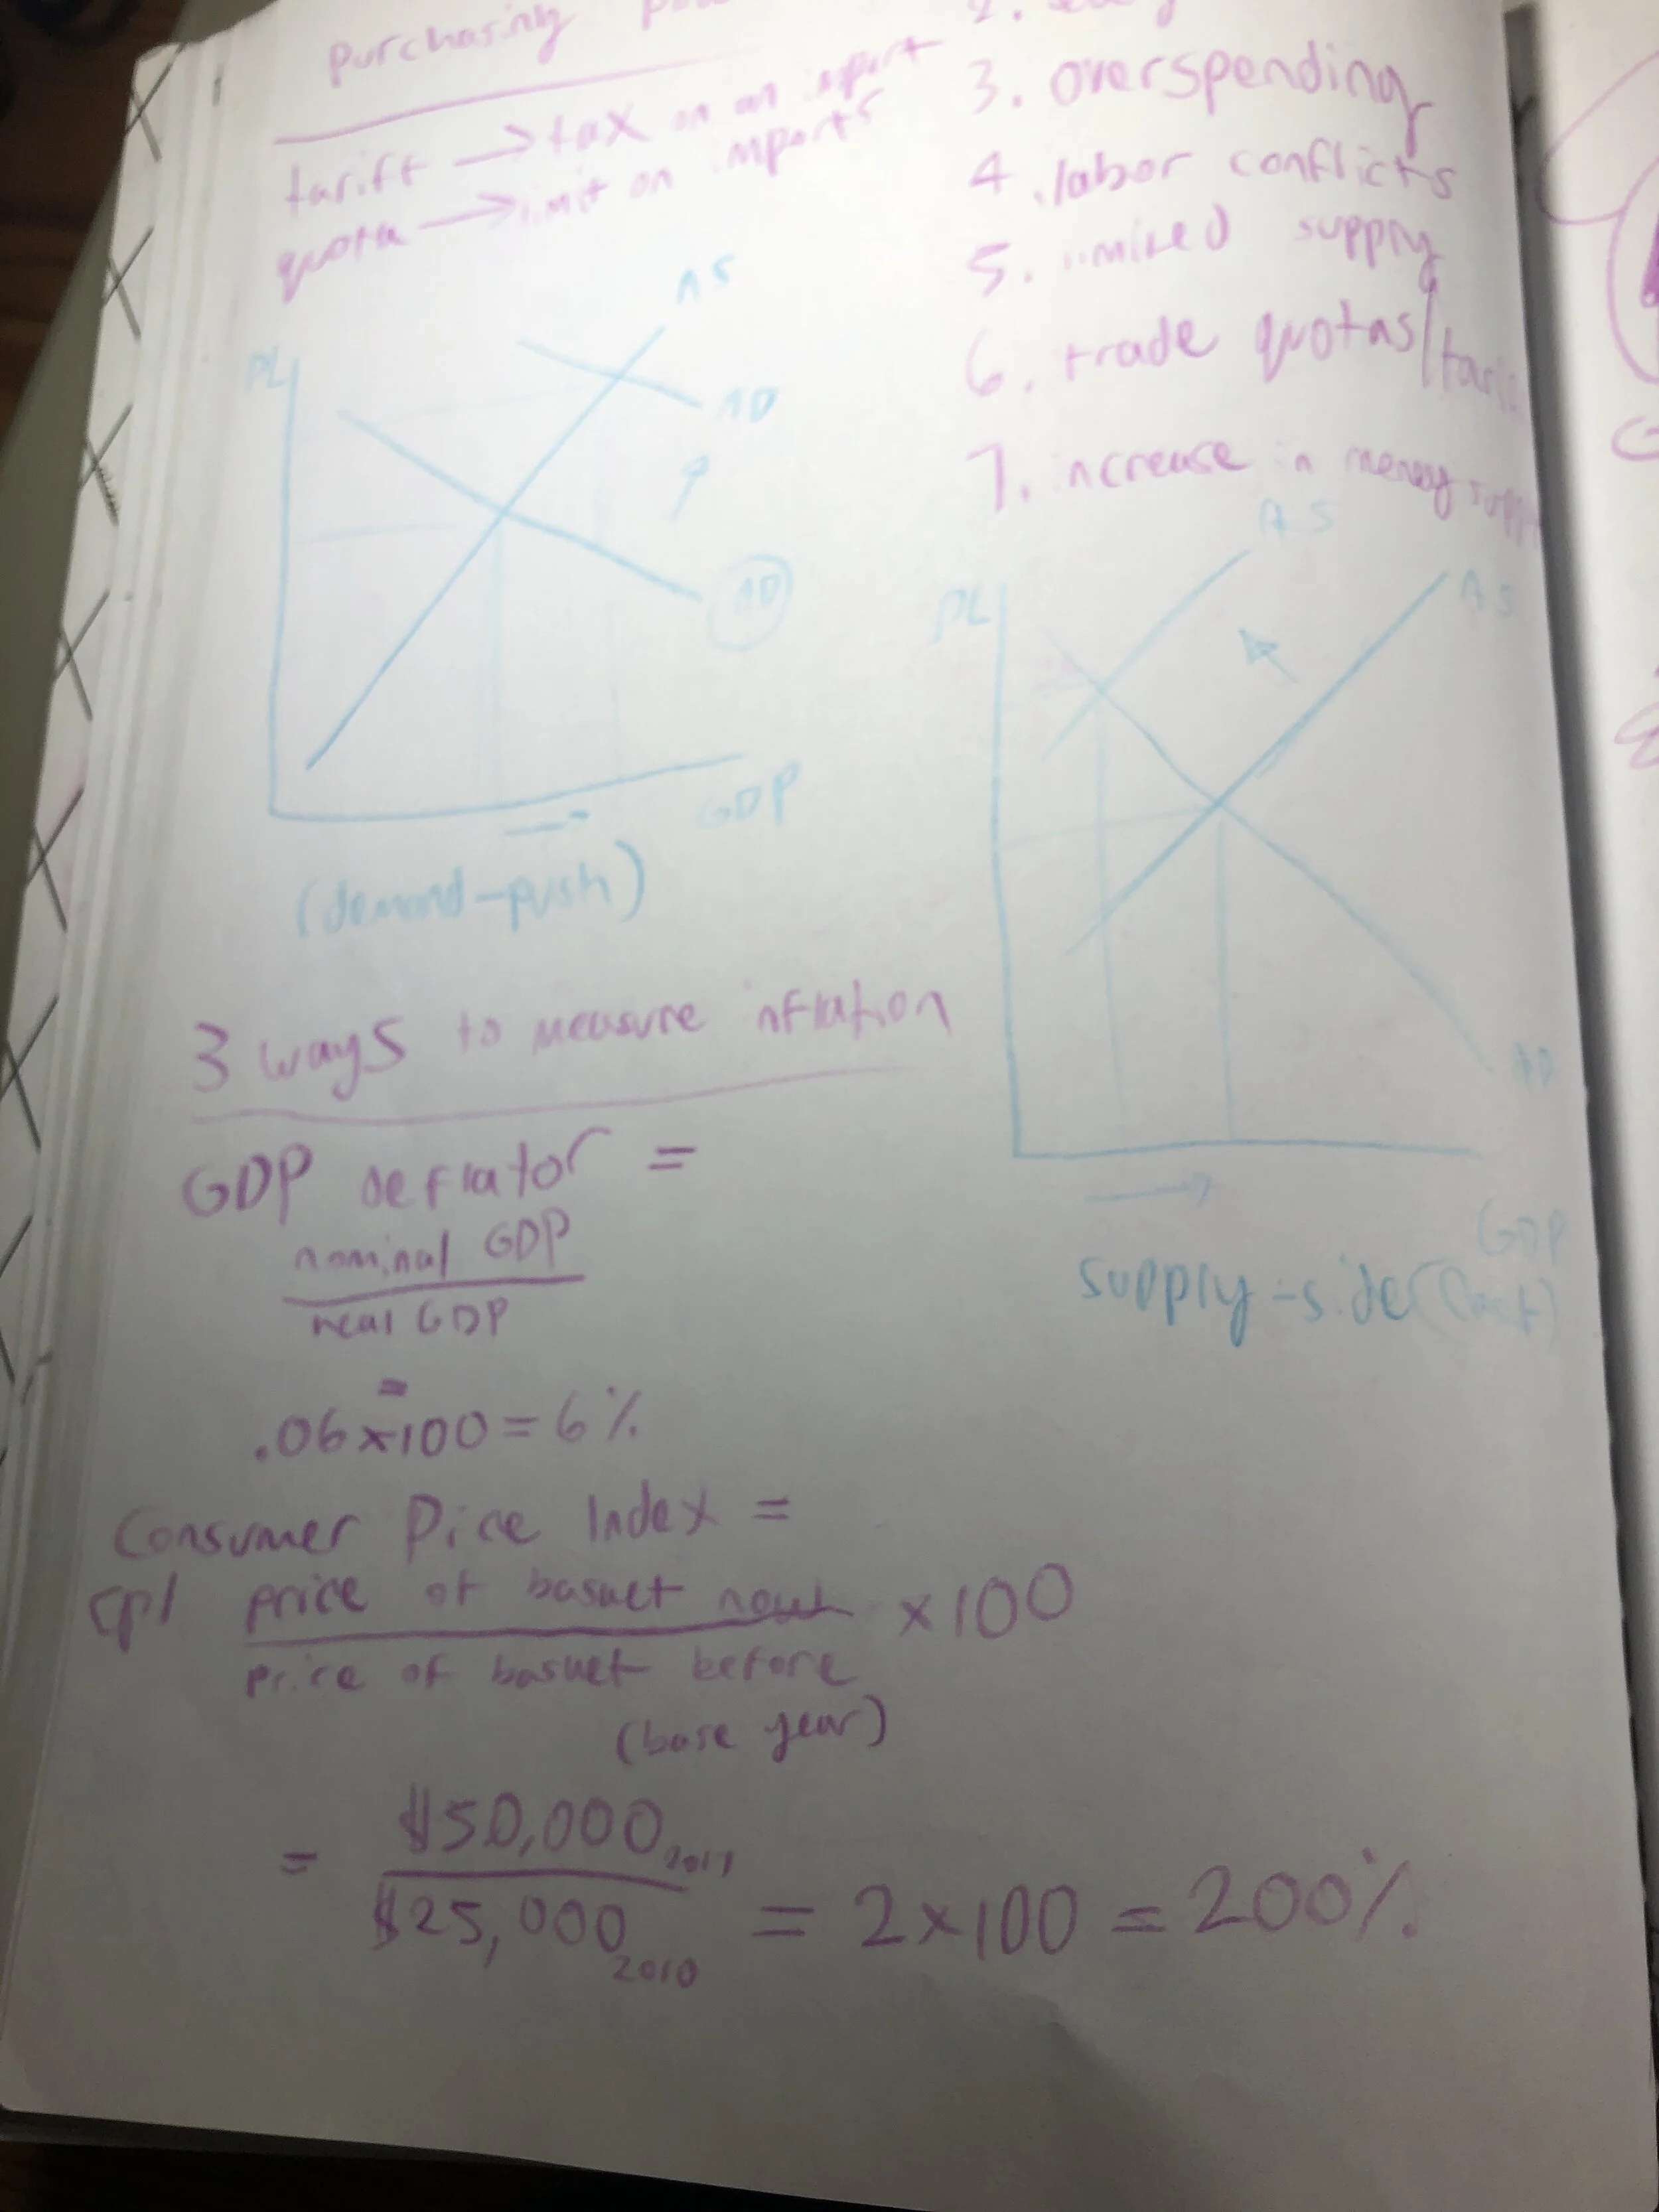 purchasing
tariff → tax on an import
quota → limit on imports
3. overspending
4. labor conflicts
5. limited supply
6. trade quotas/
7. increase in money
PL
AS
AD
AD
GDP
(demand-push)
PL
AS
AS
AD
GDP
supply-side
3 ways to measure inflation
GDP deflator =
nominal GDP
real GDP
=
.06x100 = 6%
Consumer Price Index =
CPI price of basket x100
price of basket before
(base year)
= $50,000
$25,000 2010 = 2x100 = 200%